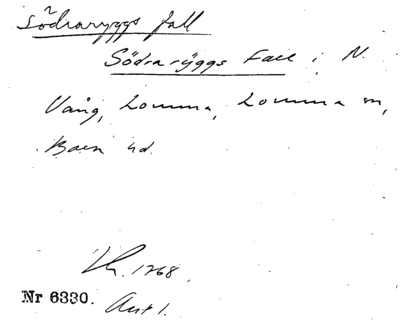 Södraryggs fall
Södrarÿggs Fall i N.
Vång, Lomma, Lomma sn,
Bara hd.
Lk. 1768.
Nr 6330. Akt 1.